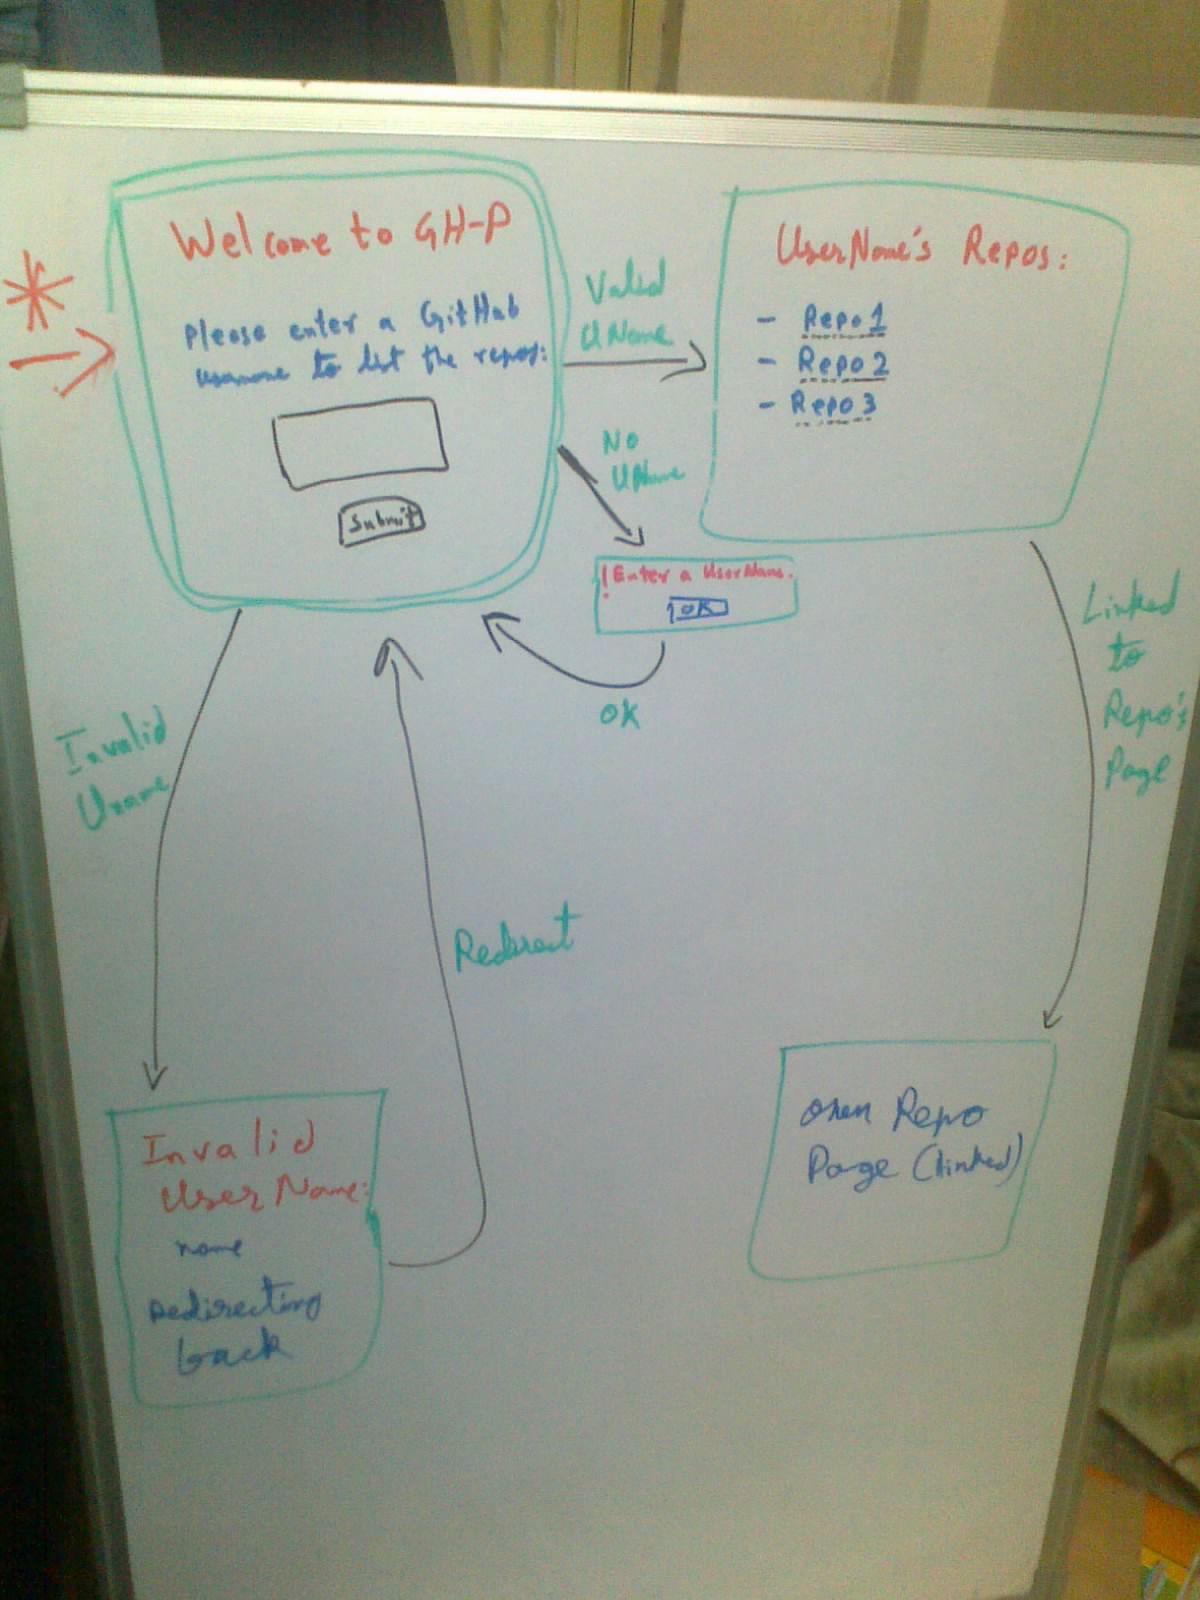 *
Welcome to GH-P
Please enter a GitHub
username to list the repos:
Submit
Valid
UName
UserName's Repos:
- Repo1
- Repo2
- Repo3
No
UName
! Enter a UserName.
OK
OK
Linked
to
Repo's
Page
Invalid
Uname
Redirect
Invalid
UserName:
name
Redirecting
back
Open Repo
Page (linked)